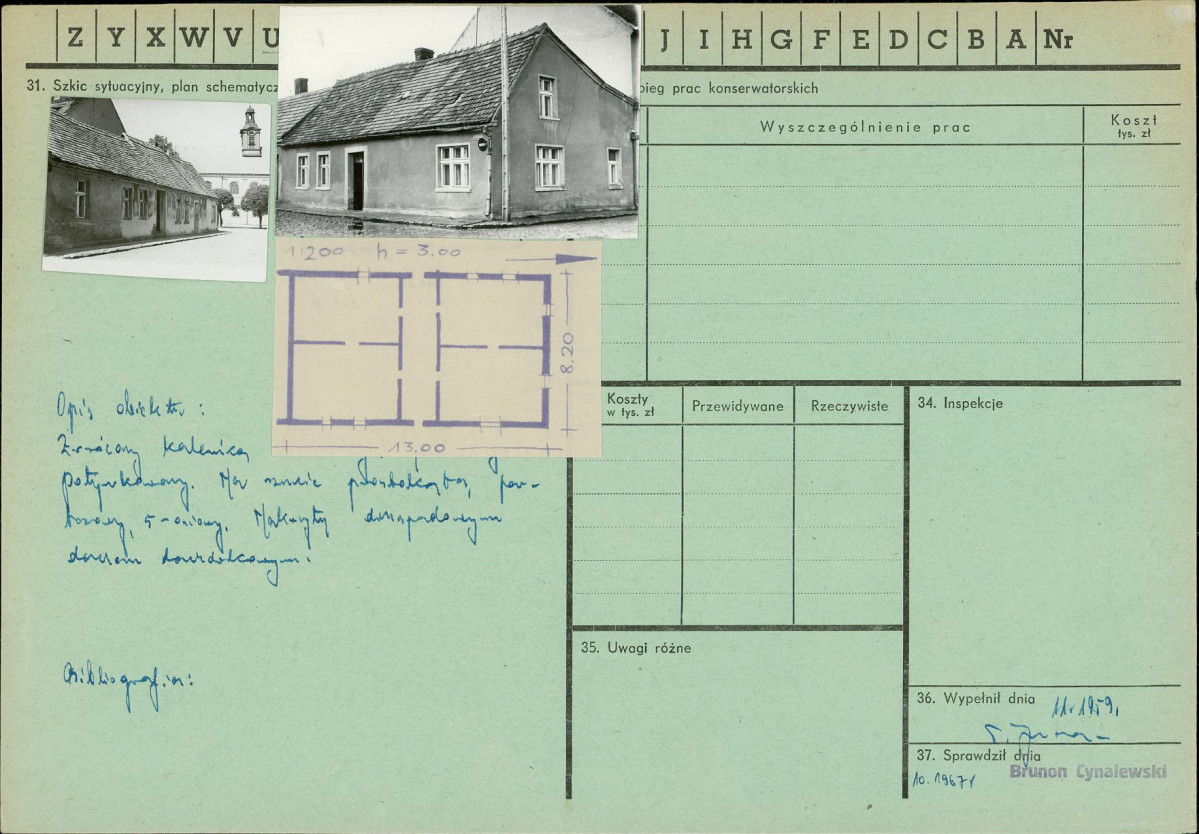 Z Y X W V U J I H G F E D C B A Nr
31. Szkic sytuacyjny, plan schematycz
bieg prac konserwatorskich
Wyszczególnienie prac
Koszt
tys. zł
1:200 h = 3.00
8.20
13.00
Opis obiektu:
Zwrócony kalenicą
potynkowany. Na rzucie prostokąta, par-
terowy, 5-osiowy. Nakryty dwuspadowym
dachem dachówkowym.
Bibliografia:
Koszty
w tys. zł
Przewidywane
Rzeczywiste
34. Inspekcje
35. Uwagi różne
36. Wypełnił dnia
11.1959.
37. Sprawdził dnia
Brunon Cynalewski
10.1967r